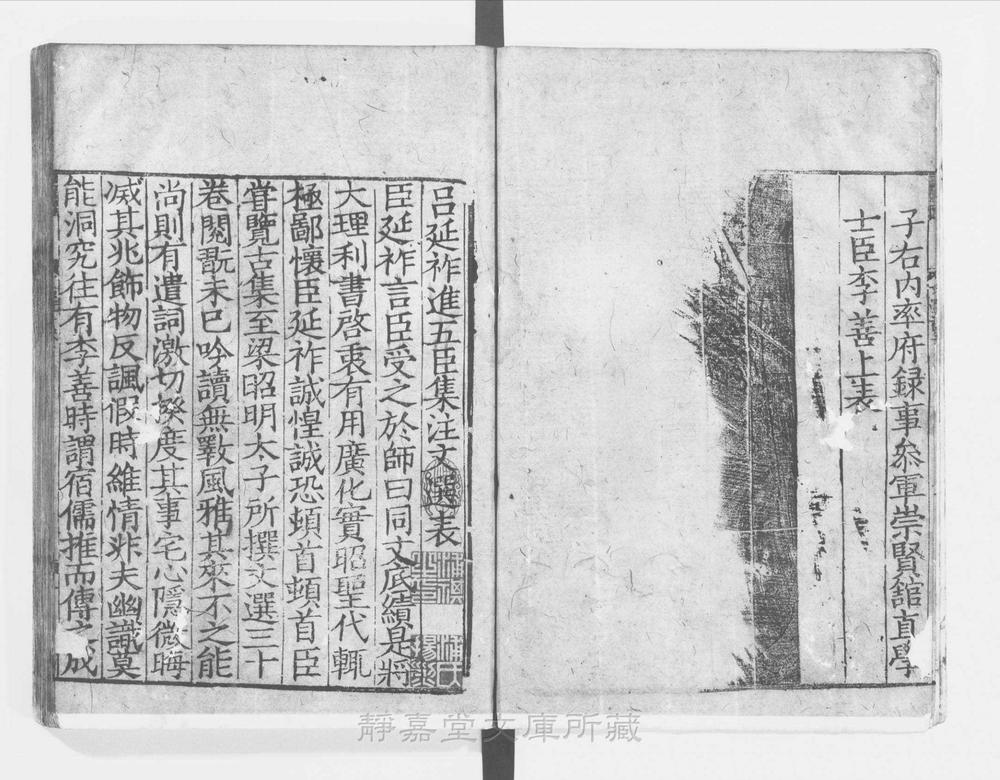 子右内率府録事叅軍崇賢館直學
士臣李善上表
吕延祚進五臣集注文選表
臣延祚言臣受之於師曰同文底績是將
大理利書啓衷有用廣化實昭聖代輒
極鄙懷臣延祚誠惶誠恐頓首頓首臣
甞覽古集至梁昭明太子所撰文選三十
卷閱翫未已吟讀無斁風雅其來不之能
尚則有遣詞激切揆度其事宅心隱微晦
滅其兆飾物反諷假時維情非夫幽識莫
能洞究往有李善時謂宿儒推而傳之成
靜嘉堂文庫所藏